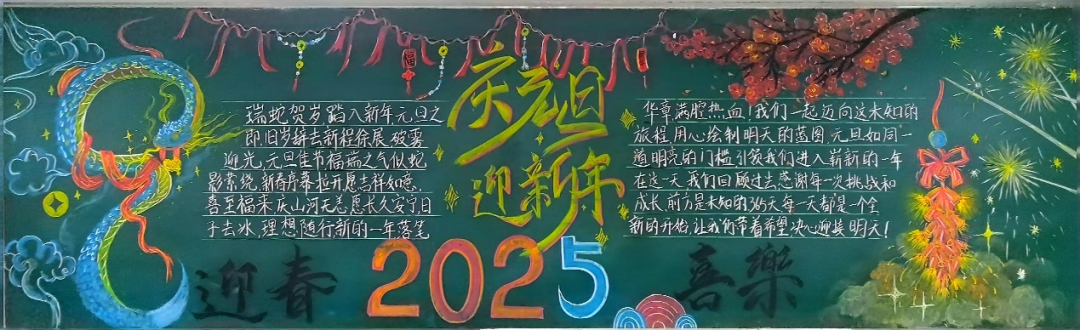 庆元旦
迎新年
瑞蛇贺岁踏入新年元旦之
即旧岁辞去新程徐展破雾
迎光,元旦佳节福瑞之气似蛇
影萦绕,新春序幕拉开愿吉祥如意,
喜至福来庆山河无恙愿长久安宁日
子去冰,理想随行新的一年落笔
华章满腔热血!我们一起迈向这未知的
旅程,用心绘制明天的蓝图,元旦如同一
道明亮的门槛引领我们进入崭新的一年
在这一天,我们回顾过去感谢年一次挑战和
成长,前方是未知的365天每一天都是一个全
新的开始,让我们带着希望决心迎接明天!
迎春
2025
喜樂